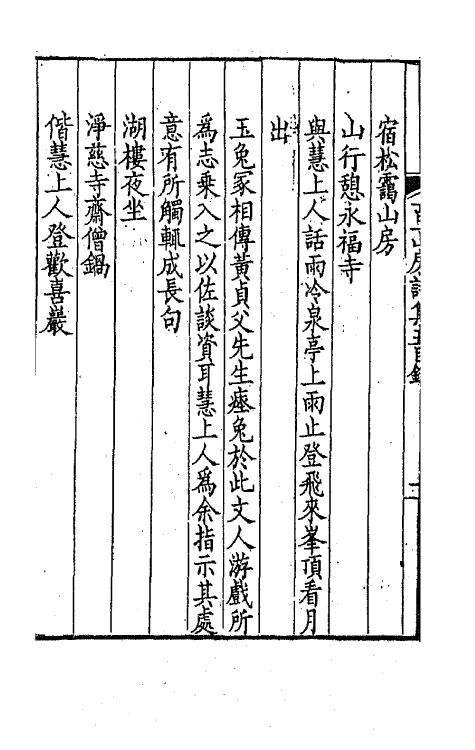 宿松靄山房
山行憩永福寺
與慧上人話雨冷泉亭上雨止登飛來峯頂看月
出
玉兔冢相傳黃貞父先生瘞兔於此文人游戲所
爲志乘入之以佐談資耳慧上人爲余指示其處
意有所觸輒成長句
湖樓夜坐
淨慈寺齋僧鍋
偕慧上人登歡喜巖